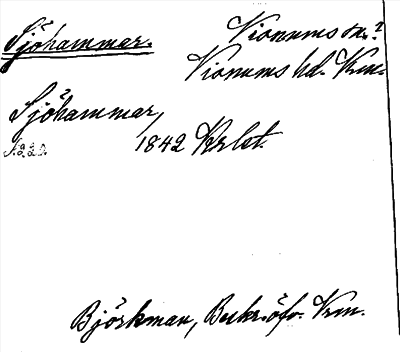 Sjöhammar. Visnums sn.?
Visnums hd. Vrm.
Sjöhammar,
S. 220. 1842 Krlst.
Björkman, Beskr. öfv. Vrm.